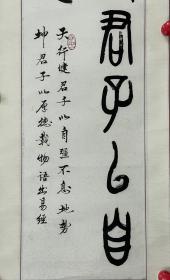 君子以自
天行健君子以自强不息地势
坤君子以厚德载物语出易经